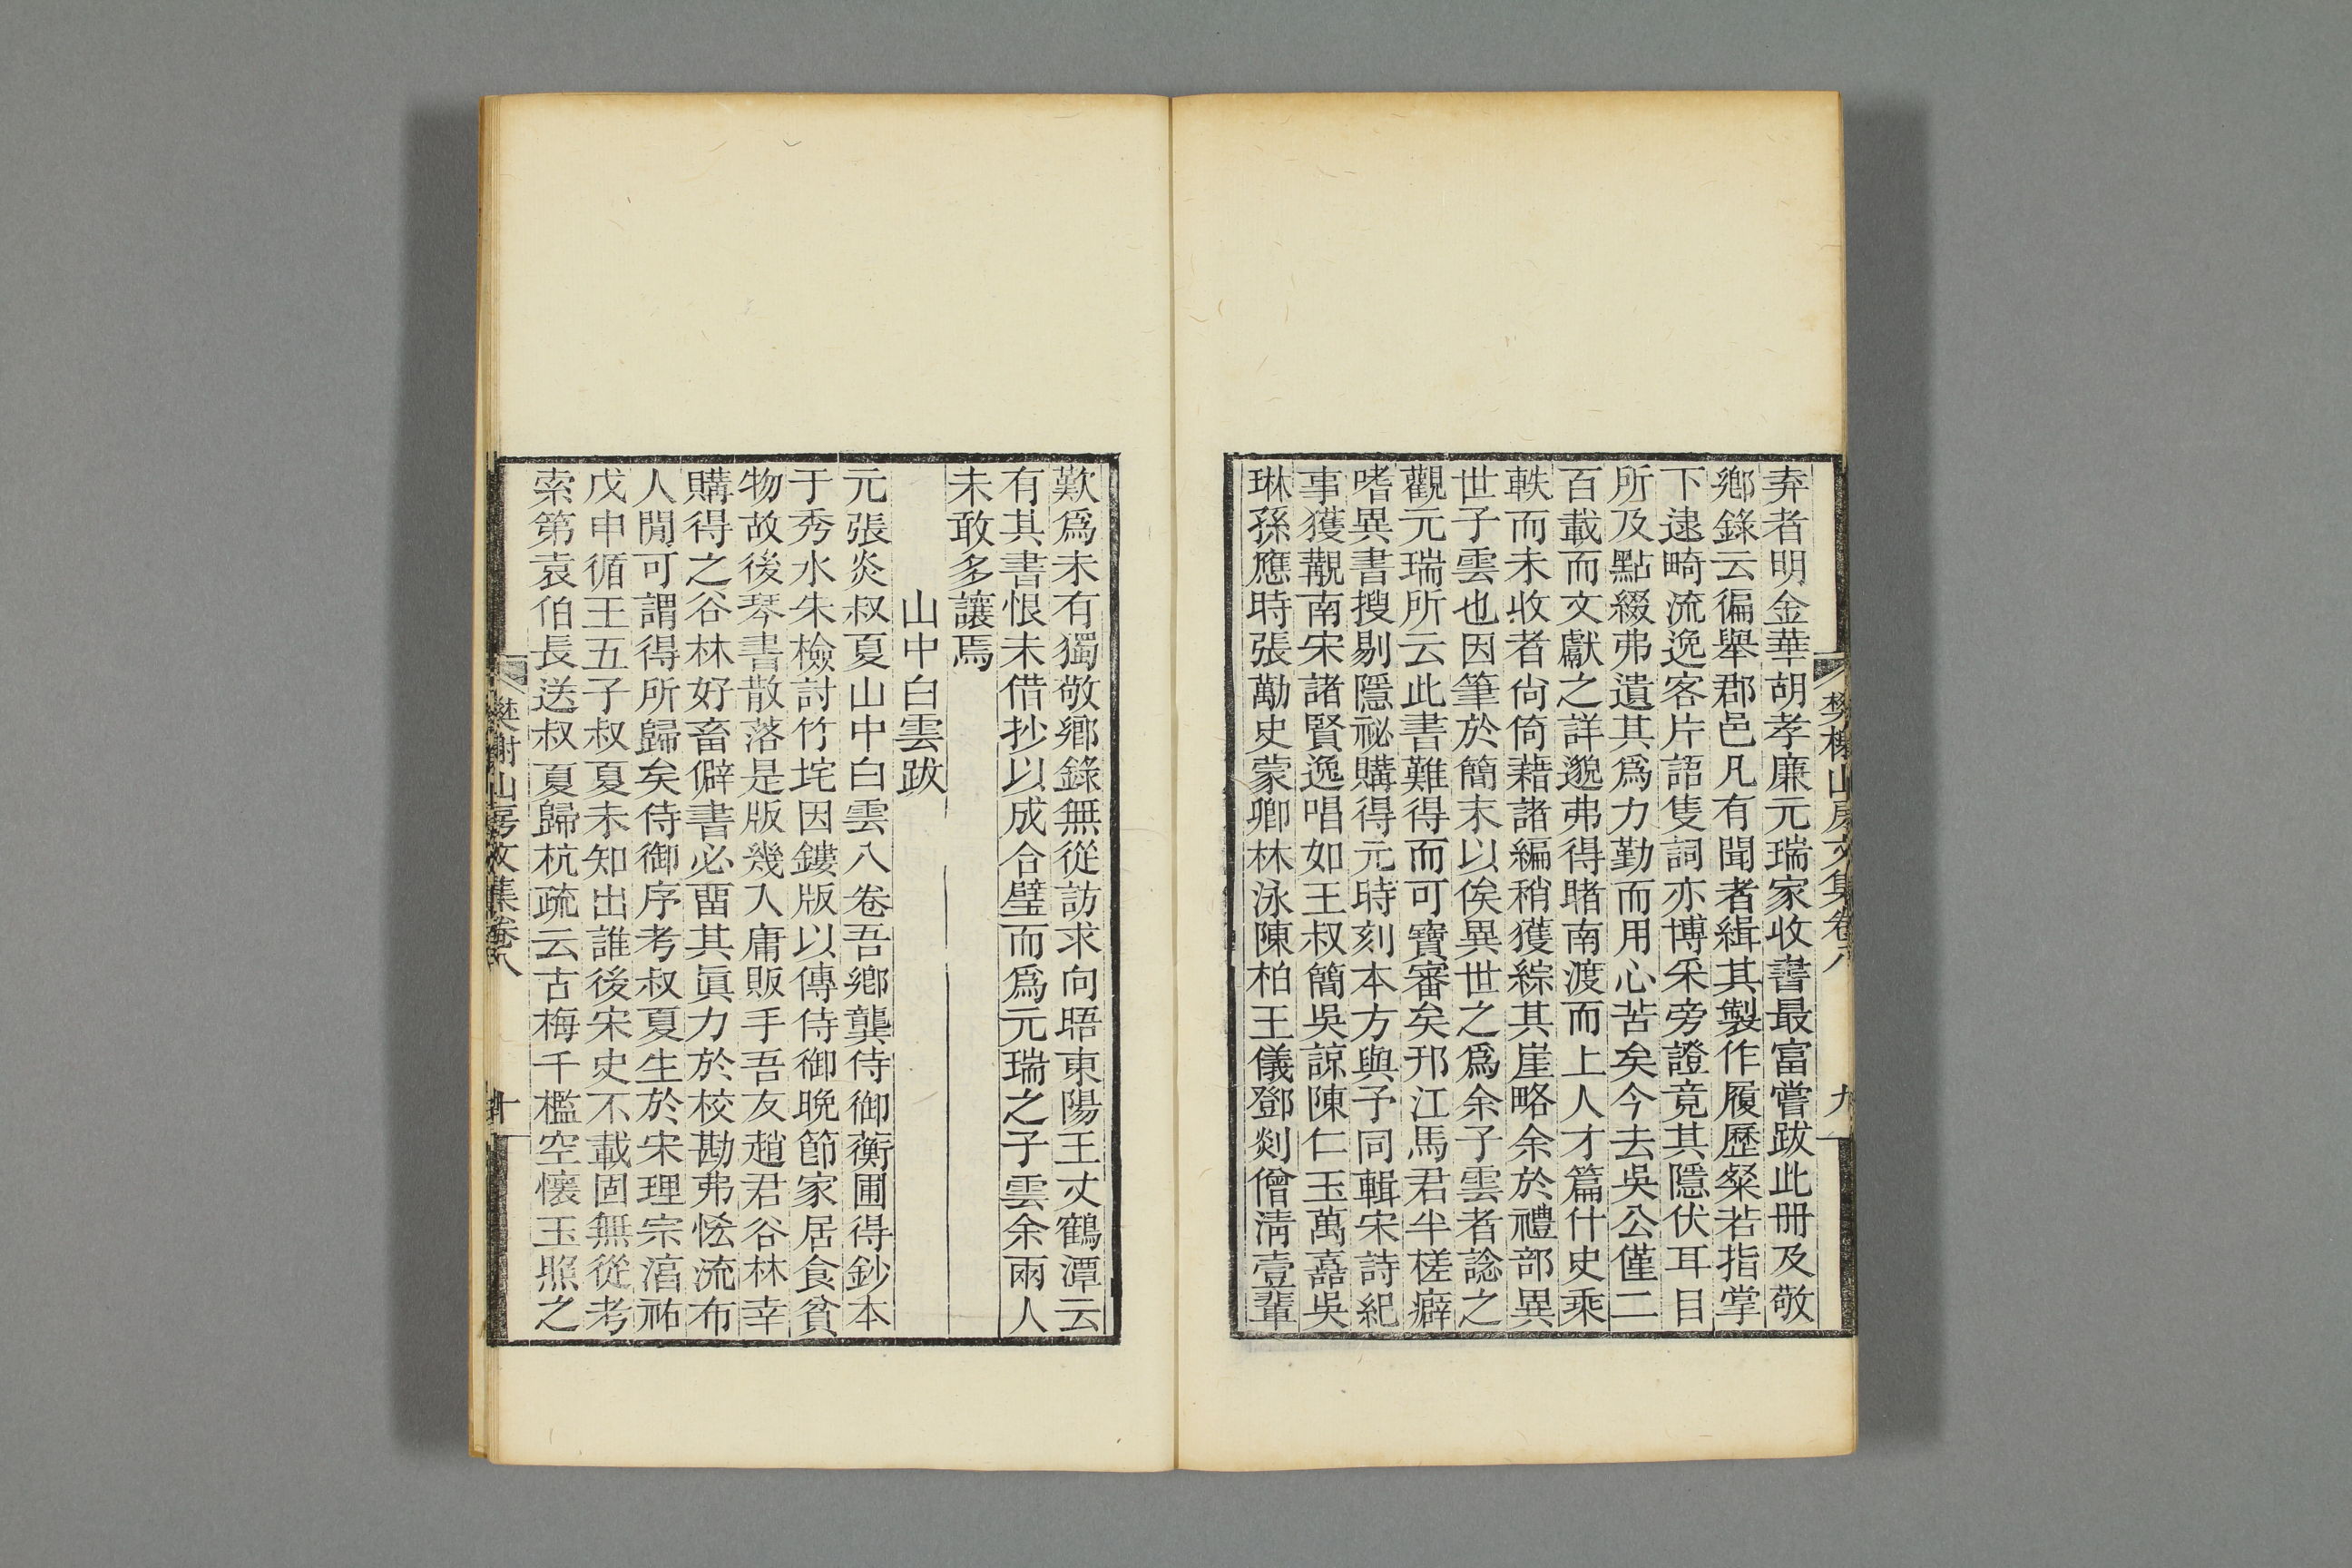 樊榭山房文集卷八
九
弆者明金華胡孝廉元瑞家收書最富嘗跋此冊及敬
鄉錄云徧舉郡邑凡有聞者緝其製作履歷粲若指掌
下逮畸流逸客片語隻詞亦博采旁證竟其隱伏耳目
所及點綴弗遺其爲力勤而用心苦矣今去吳公僅二
百載而文獻之詳邈弗得睹南渡而上人才篇什史乘
軼而未收者尙倚藉諸編稍獲綜其崖略余於禮部異
世子雲也因筆於簡末以俟異世之爲余子雲者諗之
觀元瑞所云此書難得而可寶審矣邗江馬君半槎癖
嗜異書搜剔隱祕購得元時刻本方與予同輯宋詩紀
事獲觀南宋諸賢逸唱如王叔簡吳諒陳仁玉萬嘉吳
琳孫應時張勱史蒙卿林泳陳柏王儀鄧剡僧淸壹輩
歎爲未有獨敬鄉錄無從訪求向晤東陽王丈鶴潭云
有其書恨未借抄以成合璧而爲元瑞之子雲余兩人
未敢多讓焉
山中白雲跋
元張炎叔夏山中白雲八卷吾鄉龔侍御蘅圃得鈔本
于秀水朱檢討竹垞因鏤版以傳侍御晩節家居食貧
物故後琴書散落是版幾入庸販手吾友趙君谷林幸
購得之谷林好畜僻書必畱其眞力於校勘弗恡流布
人閒可謂得所歸矣侍御序考叔夏生於宋理宗淳祐
戊申循王五子叔夏未知出誰後宋史不載固無從考
索第袁伯長送叔夏歸杭疏云古梅千檻空懷玉照之
樊榭山房文集卷八
十